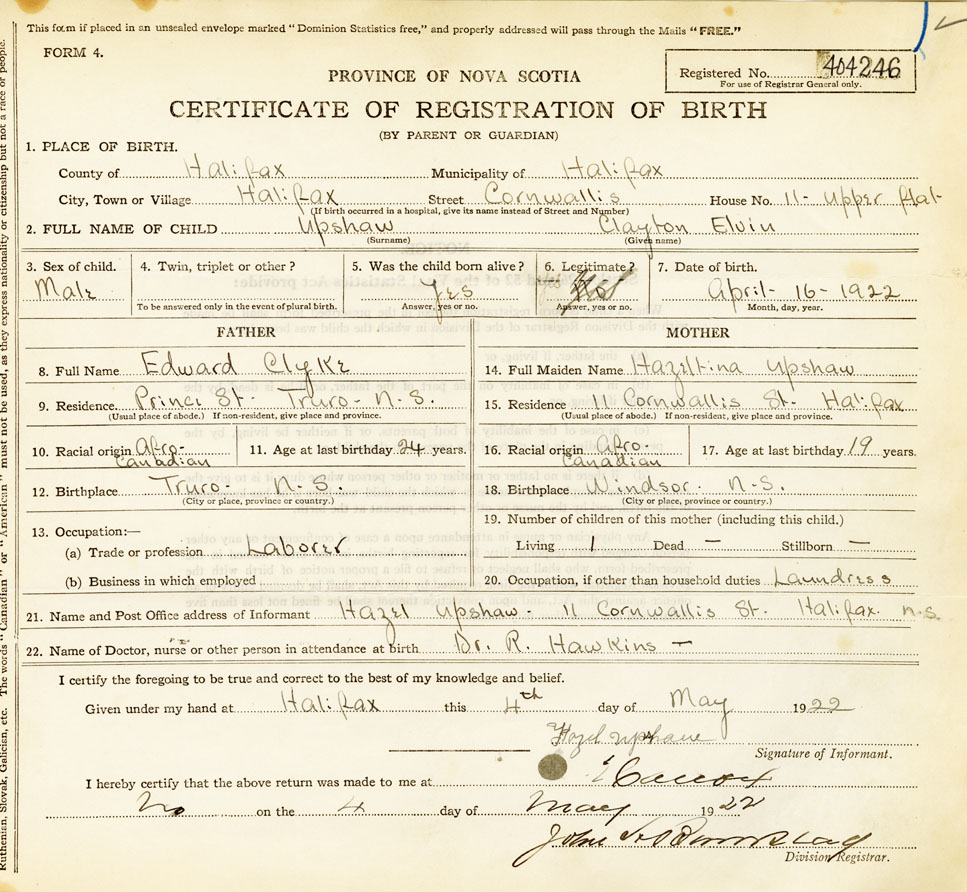 This form if placed in an unsealed envelope marked "Dominion Statistics free," and properly addressed will pass through the Mails "FREE."
FORM 4.
PROVINCE OF NOVA SCOTIA
Registered No. 404246
For use of Registrar General only.
CERTIFICATE OF REGISTRATION OF BIRTH
(BY PARENT OR GUARDIAN)
1. PLACE OF BIRTH.
County of Halifax Municipality of Halifax
City, Town or Village Halifax Street Cornwallis House No. 11 - Upper flat
(If birth occurred in a hospital, give its name instead of Street and Number)
2. FULL NAME OF CHILD Upshaw Clayton Elvin
(Surname) (Given name)
3. Sex of child. 4. Twin, triplet or other? 5. Was the child born alive? 6. Legitimate? 7. Date of birth.
Male Yes April - 16 - 1922
To be answered only in the event of plural birth. Answer, yes or no. Answer, yes or no. Month, day, year.
FATHER MOTHER
8. Full Name Edward Clyke 14. Full Maiden Name Hazeltina Upshaw
9. Residence Prince St. Truro - N.S. 15. Residence 11 Cornwallis St. Halifax
(Usual place of abode.) If non-resident, give place and province. (Usual place of abode.) If non-resident, give place and province.
10. Racial origin Afro-Canadian 11. Age at last birthday 24 years. 16. Racial origin Afro-Canadian 17. Age at last birthday 19 years.
12. Birthplace Truro - N.S. 18. Birthplace Windsor - N.S.
(City or place, province or country.) (City or place, province or country.)
13. Occupation:— 19. Number of children of this mother (including this child.)
(a) Trade or profession Laborer Living 1 Dead — Stillborn —
(b) Business in which employed 20. Occupation, if other than household duties Laundress
21. Name and Post Office address of Informant Hazel Upshaw - 11 Cornwallis St. Halifax. N.S.
22. Name of Doctor, nurse or other person in attendance at birth Dr. R. Hawkins —
I certify the foregoing to be true and correct to the best of my knowledge and belief.
Given under my hand at Halifax this 4th day of May 1922
Signature of Informant.
I hereby certify that the above return was made to me at
on the 4 day of May 1922
John
Division Registrar.
Ruthenian, Slovak, Galician, etc. The words "Canadian" or "American" must not be used, as they express nationality or citizenship but not a race or people.